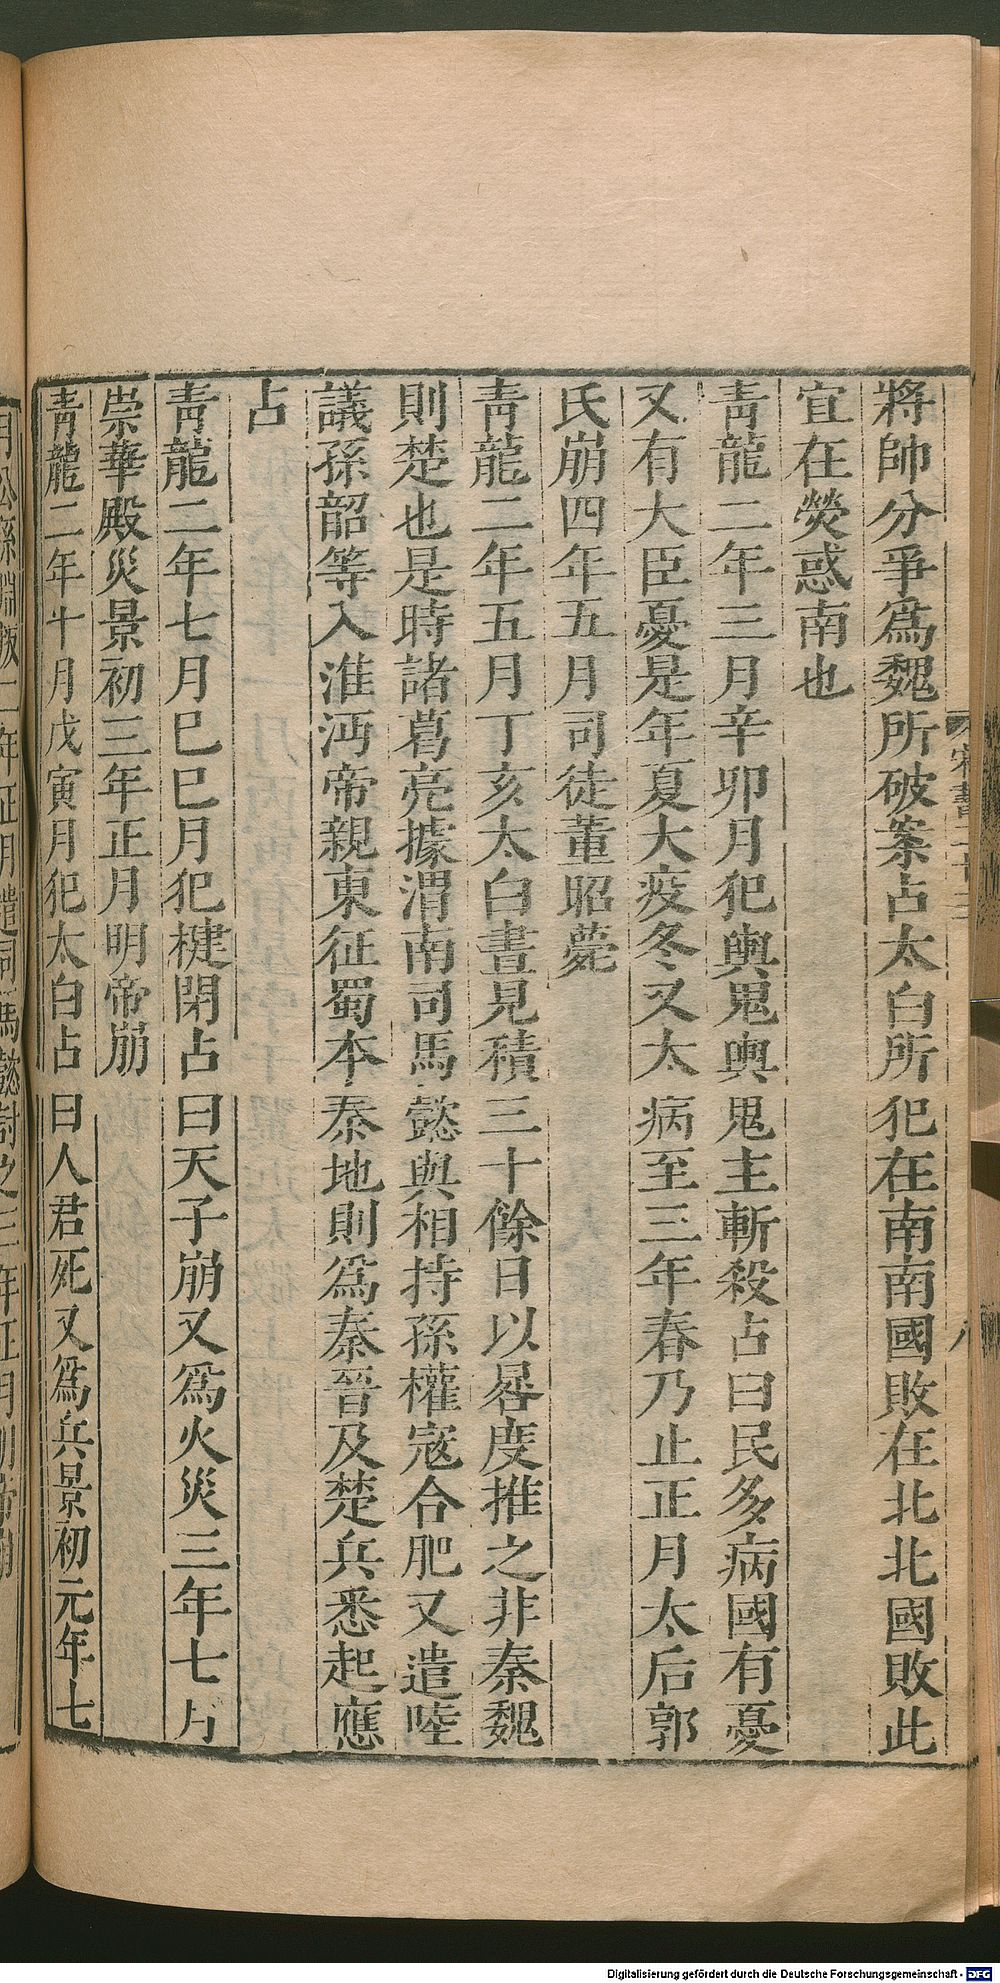 將帥分爭爲魏所破案占太白所犯在南南國敗在北北國敗此
宜在熒惑南也
靑龍二年三月辛卯月犯輿鬼輿鬼主斬殺占曰民多病國有憂
又有大臣憂是年夏大疫冬又大病至三年春乃止正月太后郭
氏崩四年五月司徒董昭薨
靑龍二年五月丁亥太白晝見積三十餘日以晷度推之非秦魏
則楚也是時諸葛亮據渭南司馬懿與相持孫權寇合肥又遣陸
議孫韶等入淮沔帝親東征蜀本秦地則爲秦晉及楚兵悉起應
占
靑龍二年七月己巳月犯楗閉占曰天子崩又爲火災三年七月
崇華殿災景初三年正月明帝崩
靑龍二年十月戊寅月犯太白占曰人君死又爲兵景初元年七
月公孫淵叛二年正月遣司馬懿討之三年正月明帝崩
Digitalisierung gefördert durch die Deutsche Forschungsgemeinschaft - DFG